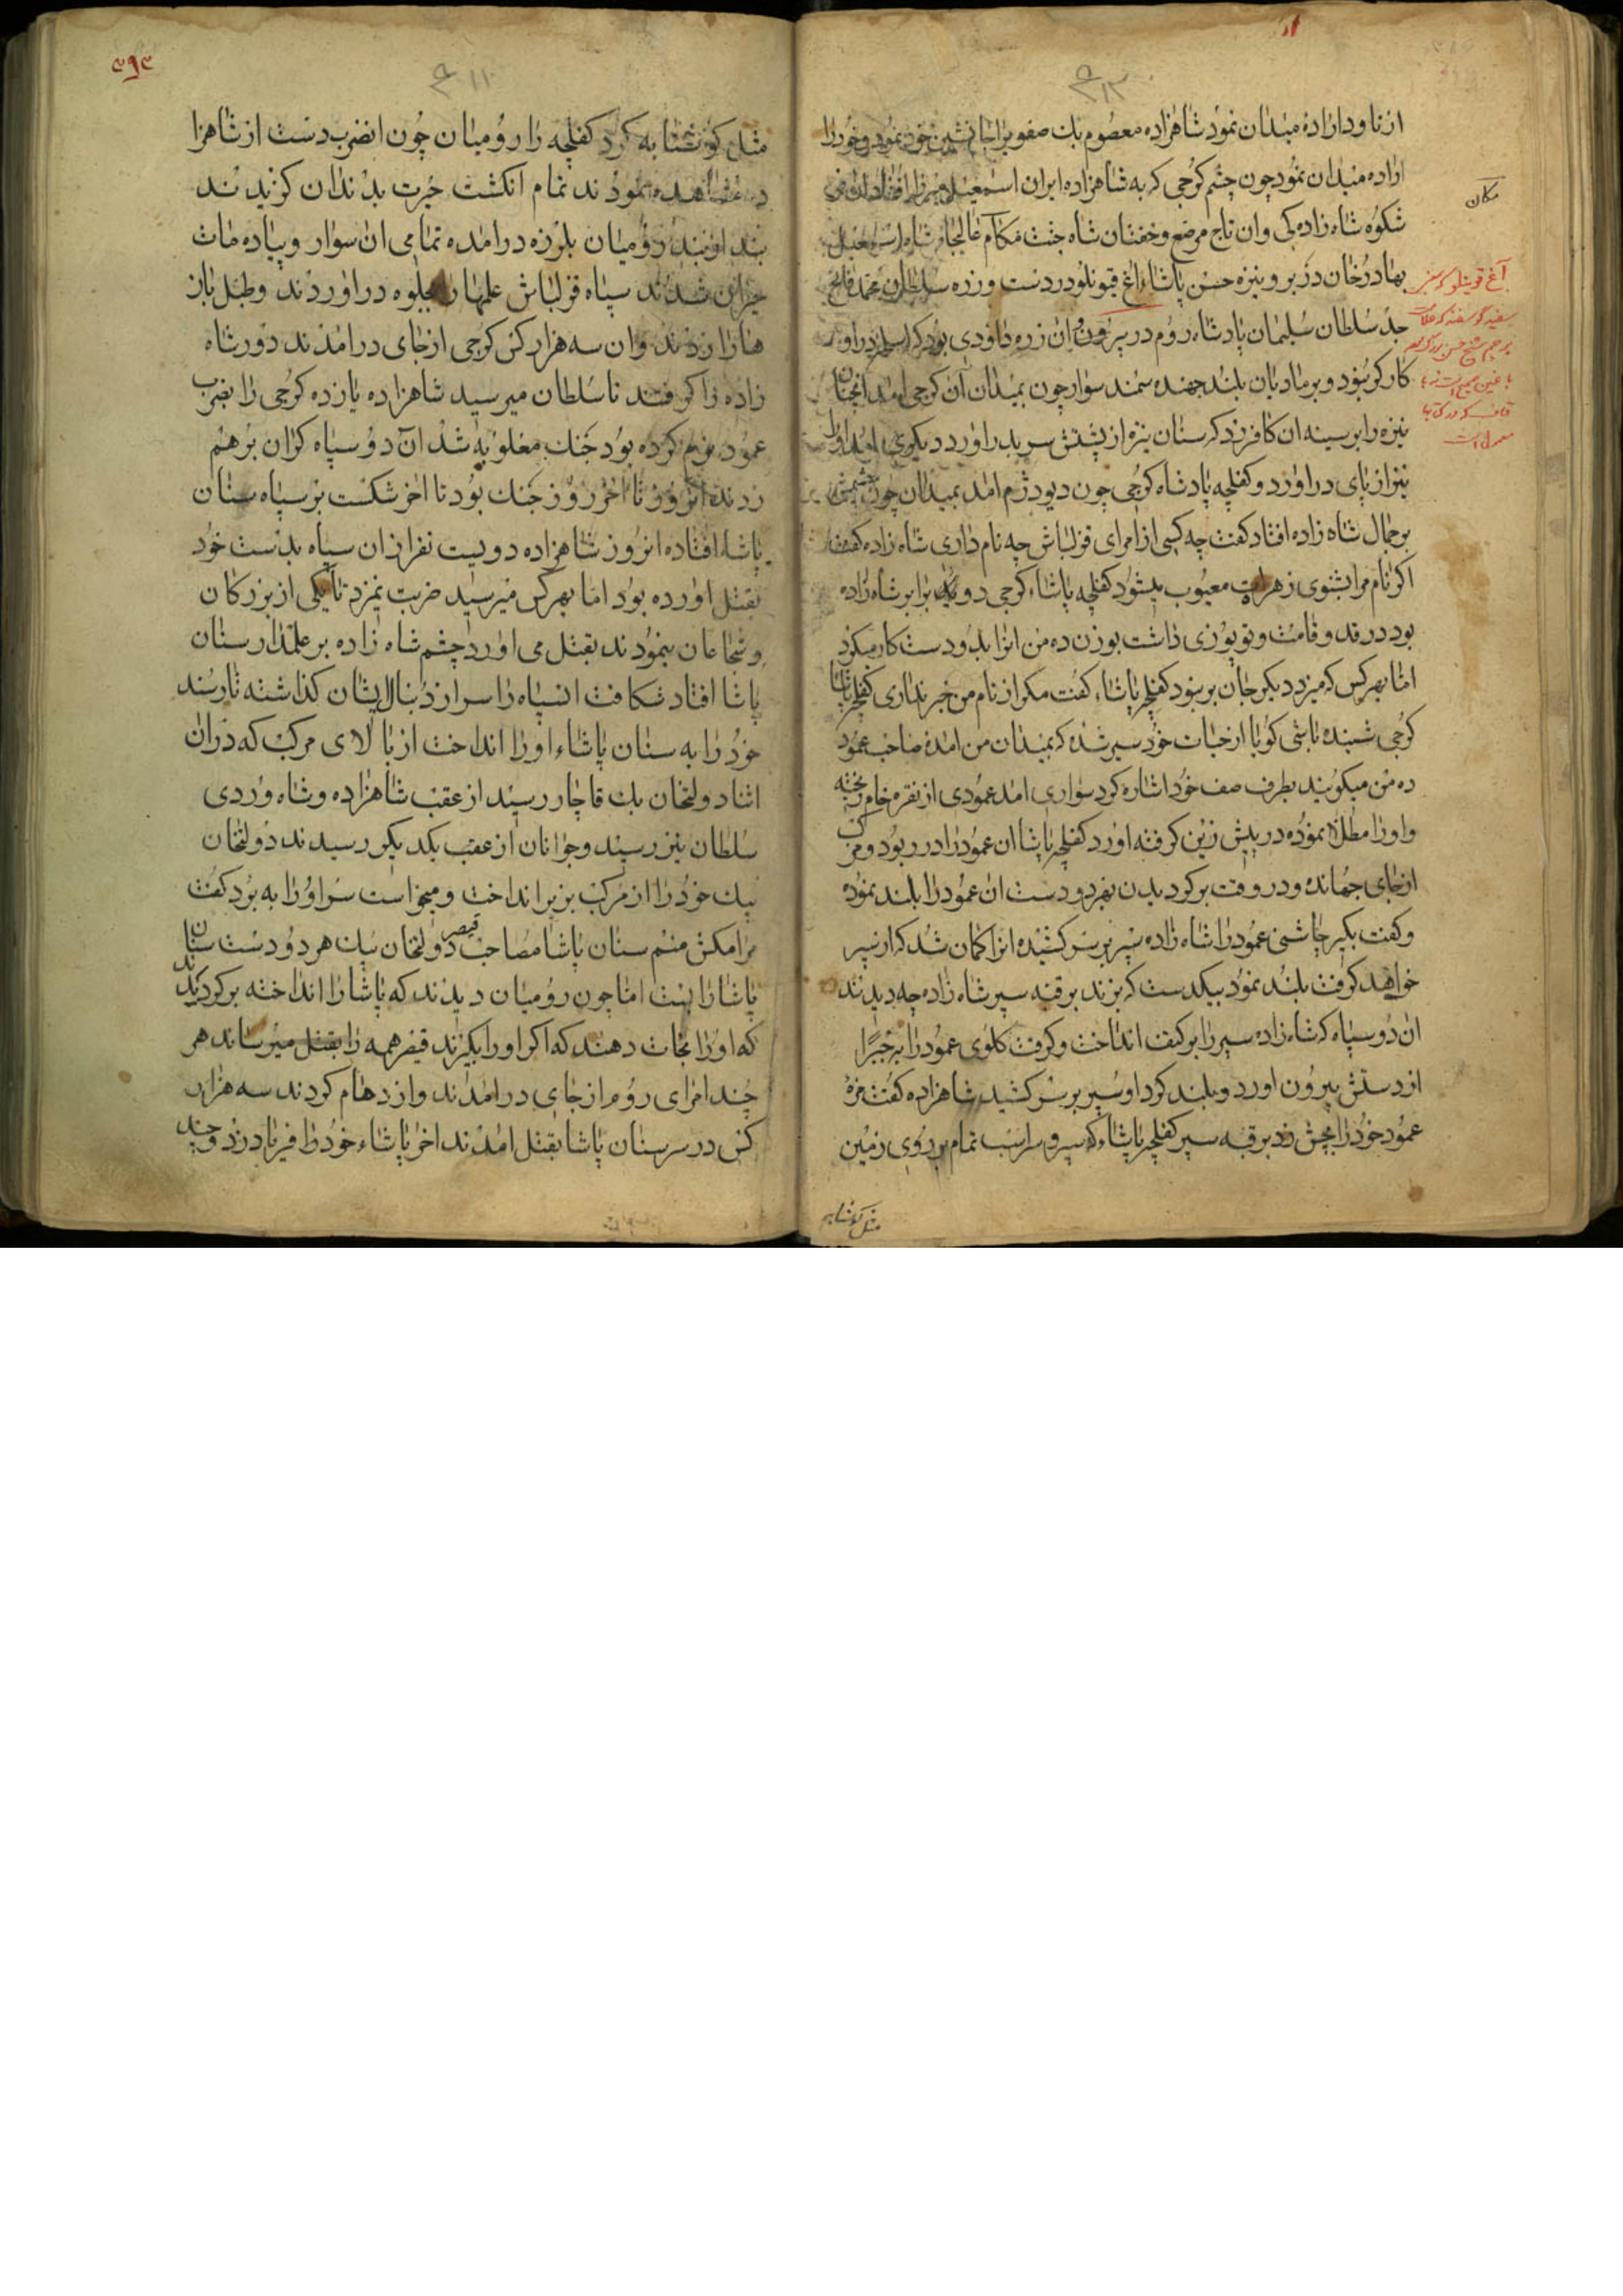 ازنا و داراده میدان نمود شاهزاده معصوم بك صفویرا جانشین خود نمود و خود را
اراده میدان نمود چون چشم کرجی که به شاهزاده ایران اسمعیل میرزا افتاد
شکوه شاه زاده کی وان تاج مرصع وخفتان شاه جنت مکان شاه اسمعیل
مکان
بهادر خان در بر و نیزه حسن پاشاء اغ قیونلو در دست و زره سلطان محمد فاتح
جد سلطان سلیمان پادشاه روم در بر و ان زره داودی بود که
کارکر نبود و بر مادیان بلند جهنده سمند سوار چون بمیدان آن کرجی امد انچنان
نیزه را بر سینه ان کافر زد که سنان نیزه از پشتش سر بدر اورد دیکری امد او را
نیز از پای در اورد و کفلچه پادشاه کرجی چون دیو دژم امد بمیدان چون چشمش
بر جمال شاه زاده افتاد کفت چه کسی از امرای قزلباش چه نام داری شاه زاده کفت
اکر نام مرا بشنوی زهرات معیوب میشود کفلچه پاشاء کرجی دو برابر شاه زاده
بود در قد و قامت و توپوزی داشت بوزن ده من انرا بدو دست کار میکرد
اما بهر کس که میزد دیکر جان بر نبود کفلچه پاشاء کفت مکر از نام من خبر نداری کفلچه پاشا
کرجی شنیده باشی کویا از حیات خود سیر شده که بمیدان من امده صاحب عمود
ده من میکویند بطرف صف خود اشاره کرد سواری امد عمودی از نقره خام ریخته
و اورا مطلا نموده در پیش زین کرفته اورد کفلچه پاشا ان عمود را در ربود و مرکب
از جای جهانده و در وقت برکردیدن بهر دو دست ان عمود را بلند نموده
و کفت بکیر چاشنی عمود را شاه زاده سپر بر سر کشیده انرا کمان شد که از سپر
خواهد کرفت بلند نمود بیکدست که بزند بر قبه سپر شاه زاده چه دیدند
ان دو سپاه که شاه زاده سپر را بر کتف انداخت و کرفت کلوی عمود را بر جبرا
از دستش بیرون اورد و بلند کرد او سپر بر سر کشید شاهزاده کفت مزه
عمود خود را بچش زد بر قبه سپر کفلچه پاشاء که سپر و سر اسب تمام بر روی زمین
مثل کوشتابه
۳۹۳
مثل کوشتابه کرد کفلچه را رومیان چون انضرب دست از شاهزا
ده مشاهده نمودند تمام انکشت حیرت بدندان کزیدند
بند از بند رومیان بلرزه درامده تمامی ان سوار و پیاده مات
حیران شدند سپاه قزلباش علمها را بجلوه در اوردند و طبل باز
هارا زدند وان سه هزار کس کرجی از جای درامدند دور شاه
زاده را کرفتند تا سلطان میر سید شاهزاده یازده کرجی را بضرب
عمود نرم کرده بود جنك مغلوبه شد آن دو سپاه کران بر هم
زدند انروز تا اخر روز جنك بود تا اخر شکست بر سپاه سنان
پاشاء افتاده انروز شاهزاده دویست نفر از ان سپاه بدست خود
بقتل اورده بود اما بهر کس میرسید ضربت نمیزد تا یکی از بزرکان
و شجاعان بنمودند بقتل می اورد چشم شاه زاده بر علمدار سنان
پاشا افتاد شکافت انسپاه را سر از دنبال ایشان کذاشته تا رسند
خود را به سنان پاشاء اورا انداخت از بالای مرکب که در ان
اثنا دولتخان بك قاچار رسید از عقب شاهزاده و شاه وردی
سلطان نیز رسیند و جوانان از عقب یکدیکر رسیدند دولتخان
بیك خود را از مرکب بزیر انداخت و میخواست سر او را به برد کفت
مرا مکش منم سنان پاشا مصاحب قیصر دولتخان بیك هر دو دست سنان
پاشا را بست اما چون رومیان دیدند که پاشا را انداخته برکردیدند
که او را نجات دهند که اکر اورا بکیرند قیصر همه را بقتل میرساند هر
چند امرای روم از جای درامدند و ازدهام کردند سه هزار
کس در سر سنان پاشا بقتل امدند اخر پاشاء خود را فریاد زد و چند